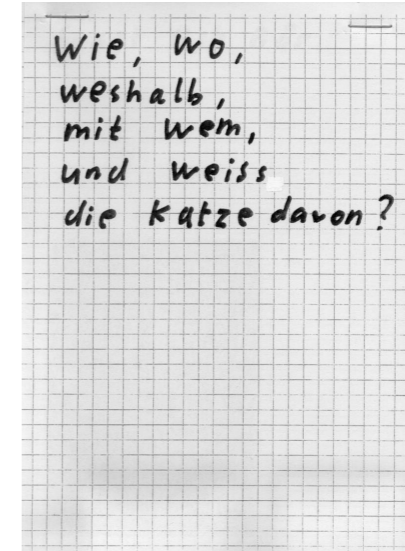 Wie, wo,
weshalb,
mit wem,
und weiss
die Katze davon?